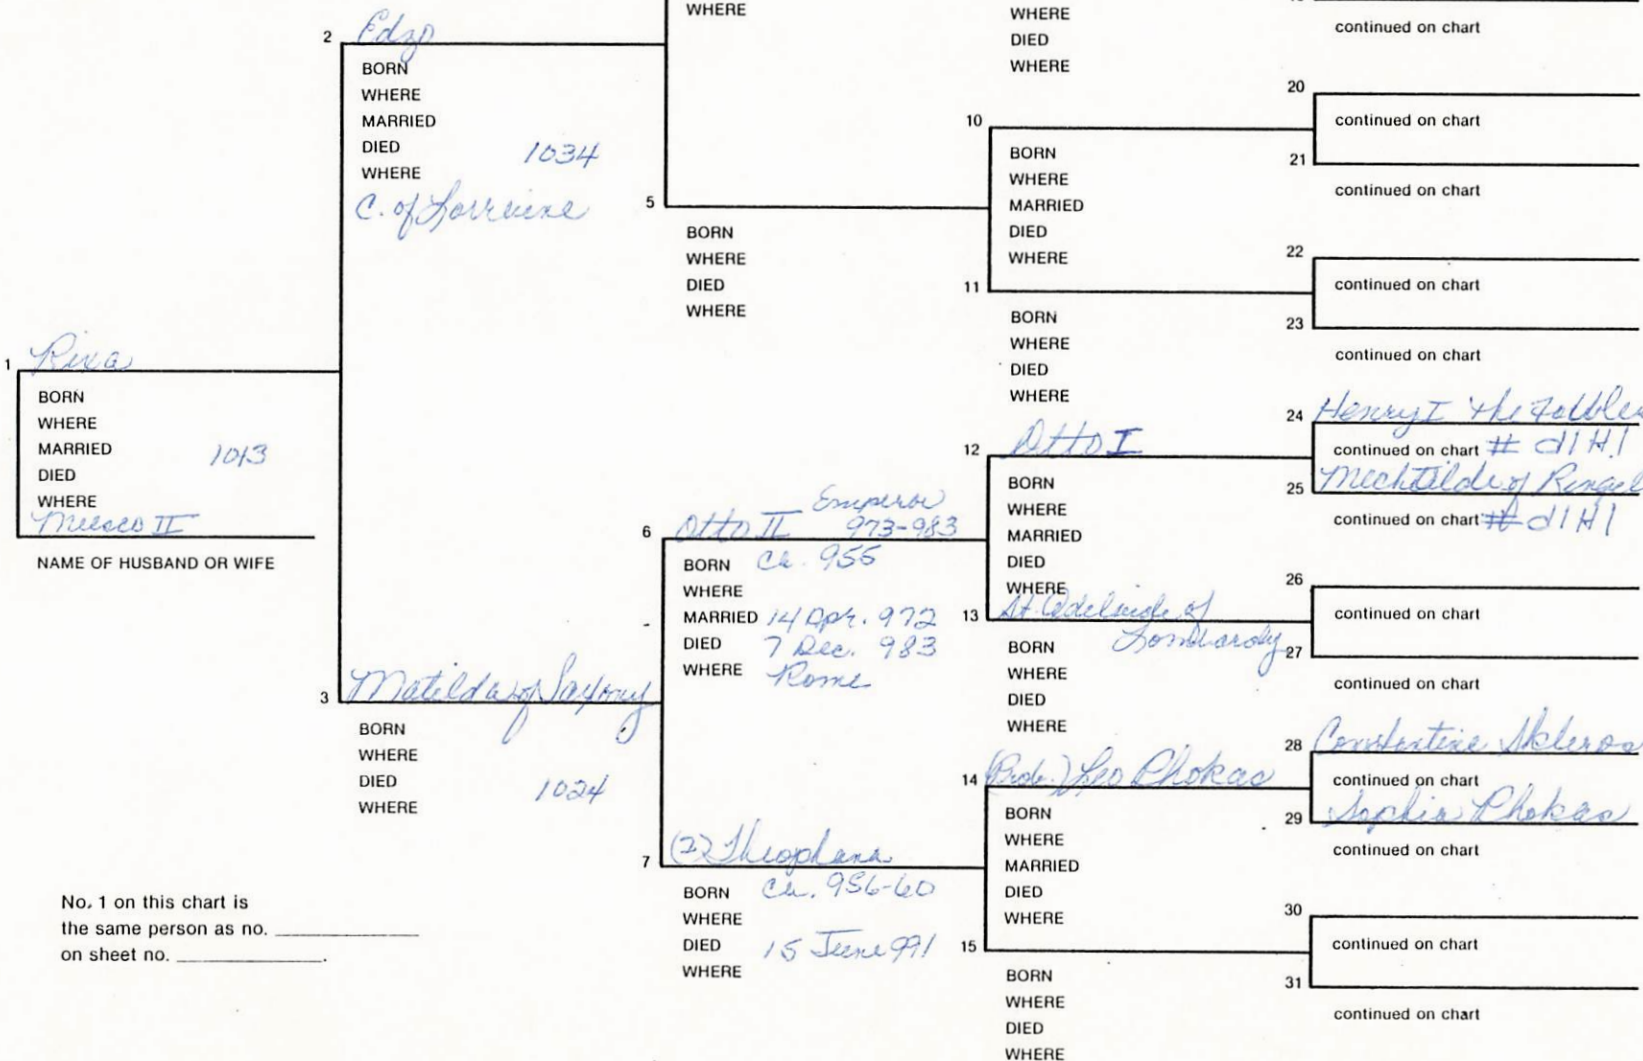 WHERE
2 Edzo
BORN
WHERE
MARRIED
DIED 1034
WHERE
C. of Lorraine
1 Rixa
BORN
WHERE
MARRIED 1013
DIED
WHERE
Miesco II
NAME OF HUSBAND OR WIFE
3 Matilda of Saxony
BORN
WHERE
DIED 1024
WHERE
No. 1 on this chart is
the same person as no.
on sheet no.
5
BORN
WHERE
DIED
WHERE
6 Otto II Emperor 973-983
BORN Ca. 955
WHERE
MARRIED 14 Apr. 972
DIED 7 Dec. 983
WHERE Rome
7 (2) Theophana
BORN Ca. 956-60
WHERE
DIED 15 June 991
WHERE
WHERE
DIED
WHERE
10
BORN
WHERE
MARRIED
DIED
WHERE
11
BORN
WHERE
DIED
WHERE
12 Otto I
BORN
WHERE
MARRIED
DIED
WHERE
13 St. Adelaide of Lombardy
BORN
WHERE
DIED
WHERE
14 (Prob.) Leo Phokas
BORN
WHERE
MARRIED
DIED
WHERE
15
BORN
WHERE
DIED
WHERE
continued on chart
20
continued on chart
21
continued on chart
22
continued on chart
23
continued on chart
24 Henry I the
continued on chart # d1H1
25 Mechtilde of
continued on chart # d1H1
26
continued on chart
27
continued on chart
28 Constantine Skleros
continued on chart
29 Sophia Phokas
continued on chart
30
continued on chart
31
continued on chart